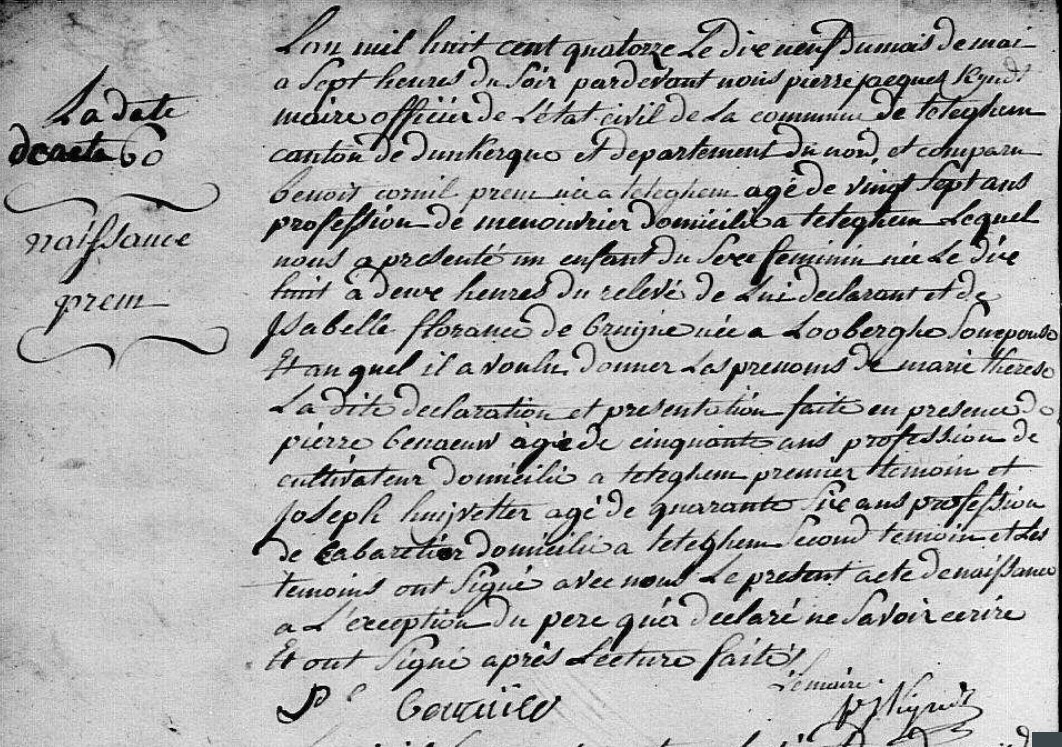 La date
de acte 60
naissance
prem
L'an mil huit cent quatorze Le dix neuf du mois de mai
a Sept heures du Soir pardevant nous pierre jacques
maire officier de L'état civil de La commune de teteghem
canton de dunkerque et departement du nord, et comparu
benoit cornil prem née a teteghem agé de vingt Sept ans
profession de menouvrier domicilié a teteghem Lequel
nous a presenté un enfant du Sexe feminin née Le dix
huit a deux heures du relevé de Lui declarant et de
Isabelle florance de Cruijne née a Looberghe Son epouse
Et au quel il a voulu donner Les prenoms de marie therese
La dite declaration et presentation faite en presence de
pierre benaeuw agé de cinquante ans profession de
cultivateur domicilié a teteghem premier temoin et
Joseph huijvetter agé de quarante Six ans profession
de cabaretier domicilié a teteghem Second temoin et Les
temoins ont Signé avec nous Le present acte de naissance
a L'exception du pere qu'a declaré ne Savoir ecrire
Et ont Signé après Lecture faite
Le maire